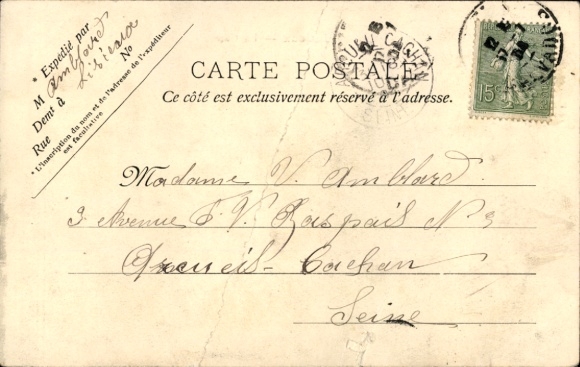 * Expédié par
M Amblard
Demt à Lisieux
Rue No
* L'inscription du nom et de l'adresse de l'expéditeur
est facultative
CARTE POSTALE
Ce côté est exclusivement réservé à l'adresse.
15c
Madame V. Amblard
9 Avenue F. V. Raspail N 3
Arcueil-Cachan
Seine